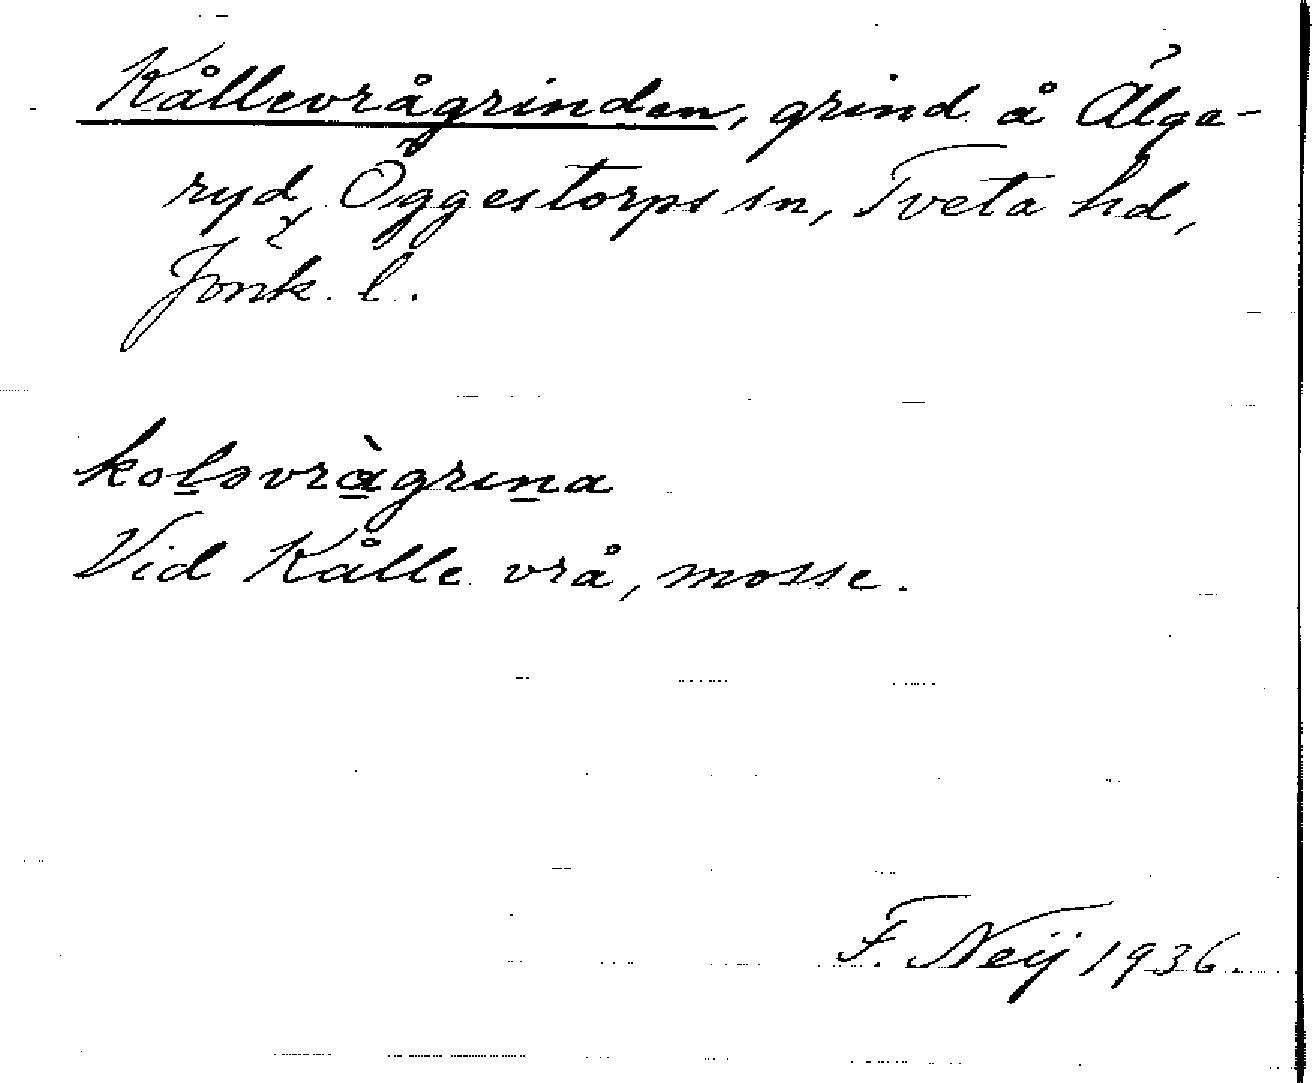 Kållevrågrinden, grind å Älga-
ryd, Öggestorps sn, Tveta hd,
Jönk. l.
koləvràgrina
Vid Kålle vrå, mosse.
F. Neij 1936.